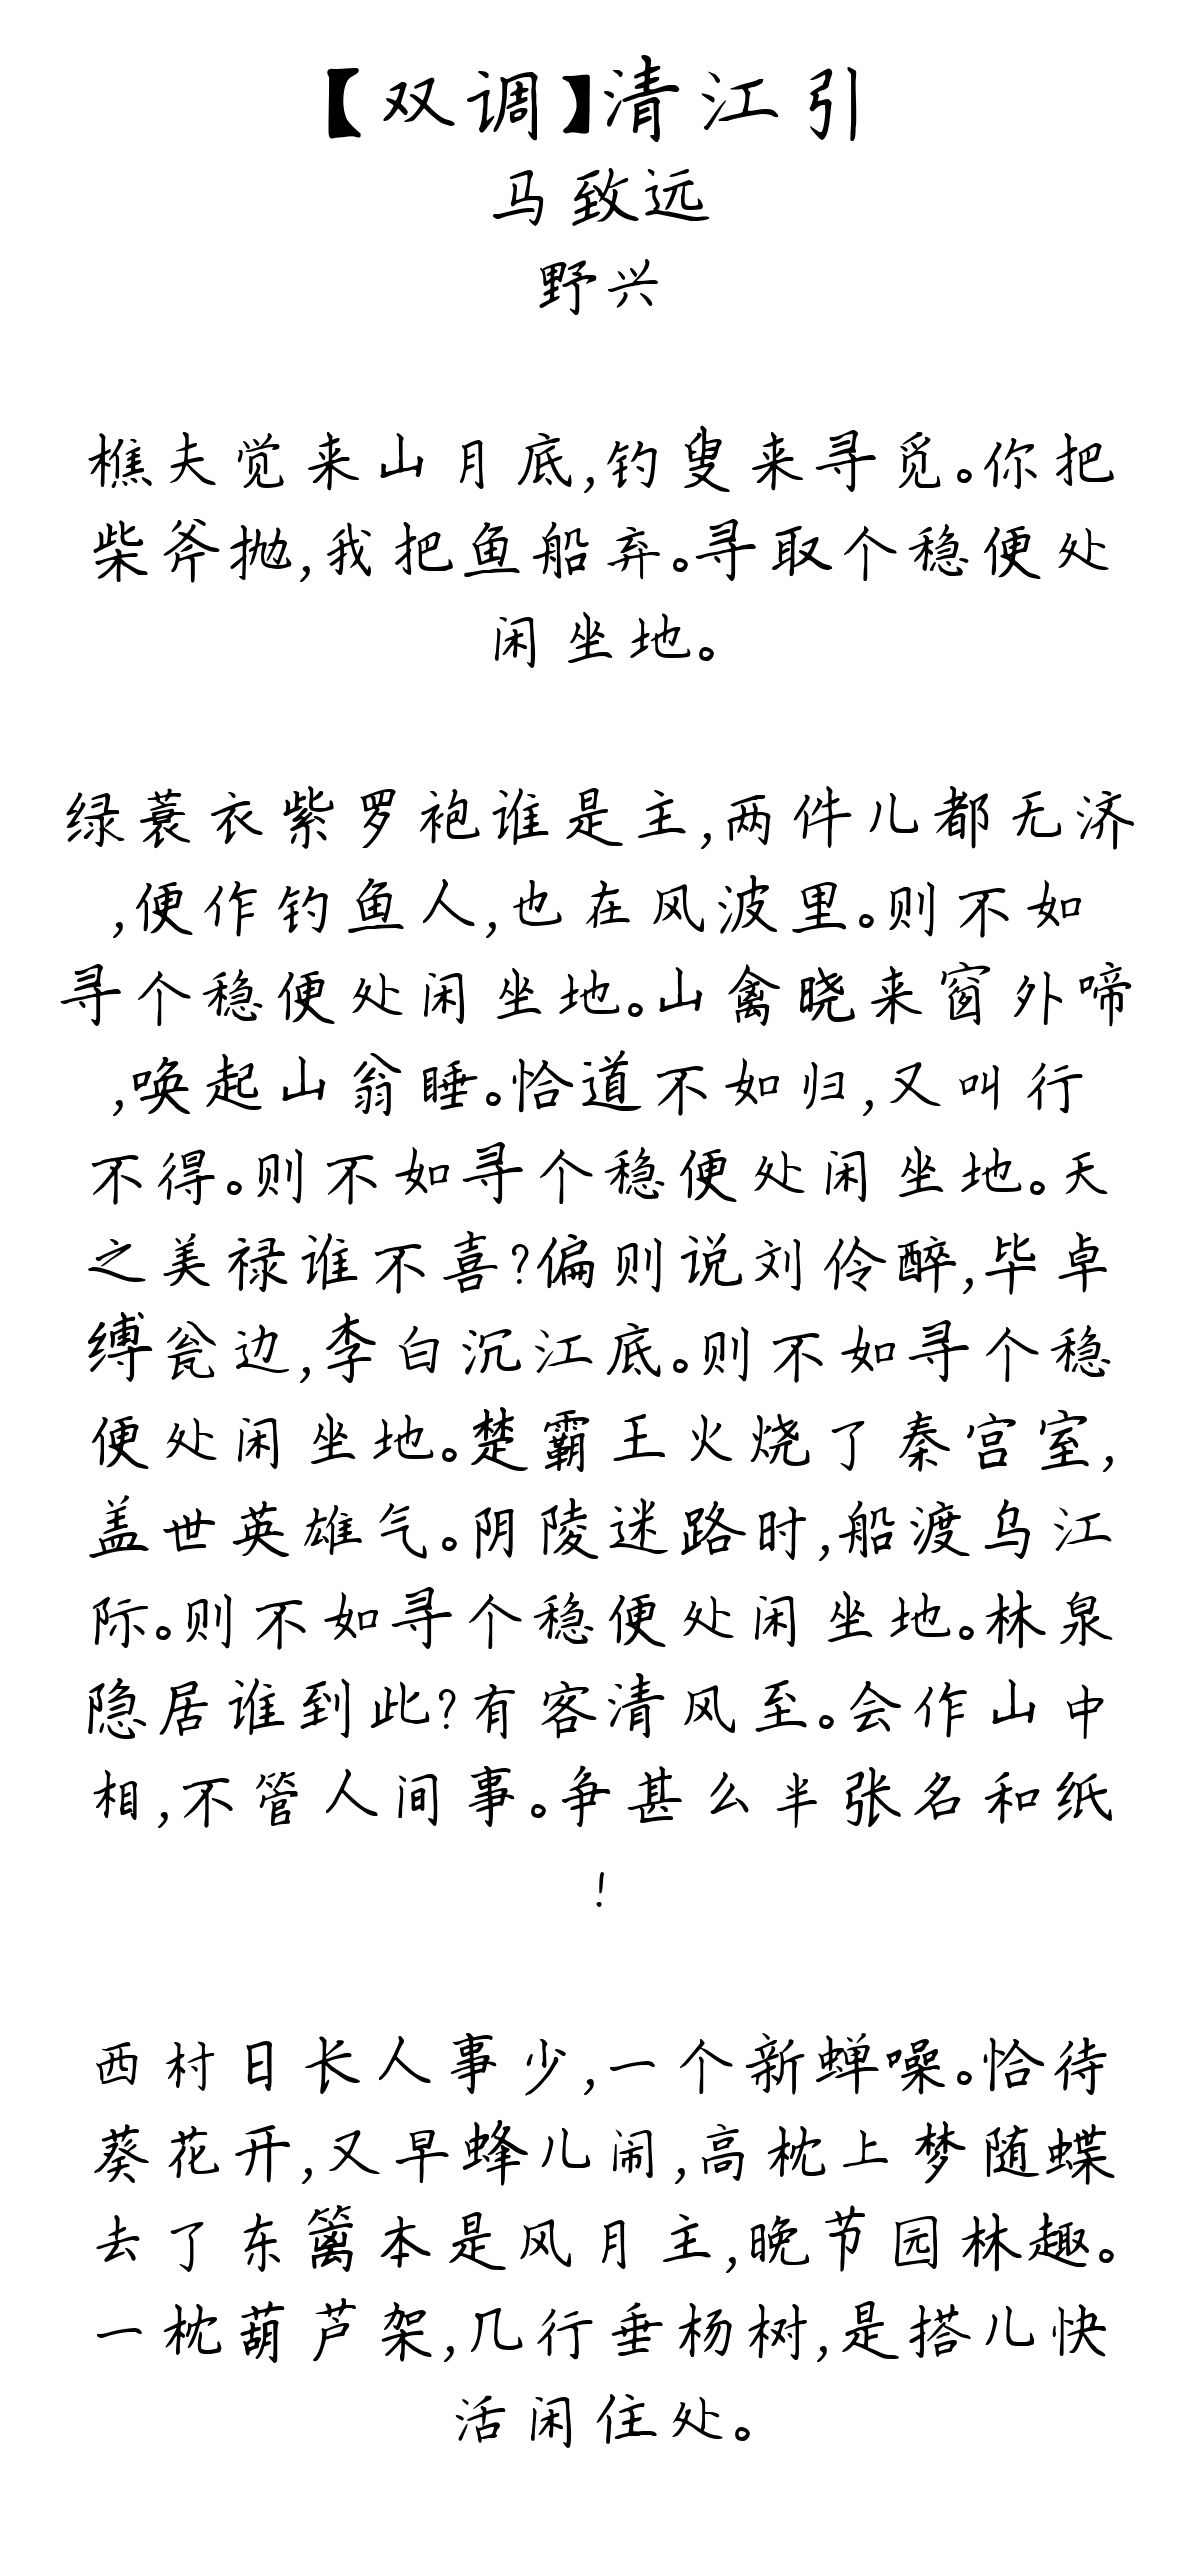 【双调】清江引
马致远
野兴
樵夫觉来山月底,钓叟来寻觅。你把
柴斧抛,我把鱼船弃。寻取个稳便处
闲坐地。
绿蓑衣紫罗袍谁是主,两件儿都无济
,便作钓鱼人,也在风波里。则不如
寻个稳便处闲坐地。山禽晓来窗外啼
,唤起山翁睡。恰道不如归,又叫行
不得。则不如寻个稳便处闲坐地。天
之美禄谁不喜?偏则说刘伶醉,毕卓
缚瓮边,李白沉江底。则不如寻个稳
便处闲坐地。楚霸王火烧了秦宫室,
盖世英雄气。阴陵迷路时,船渡乌江
际。则不如寻个稳便处闲坐地。林泉
隐居谁到此?有客清风至。会作山中
相,不管人间事。争甚么半张名和纸
!
西村日长人事少,一个新蝉噪。恰待
葵花开,又早蜂儿闹,高枕上梦随蝶
去了东篱本是风月主,晚节园林趣。
一枕葫芦架,几行垂杨树,是搭儿快
活闲住处。